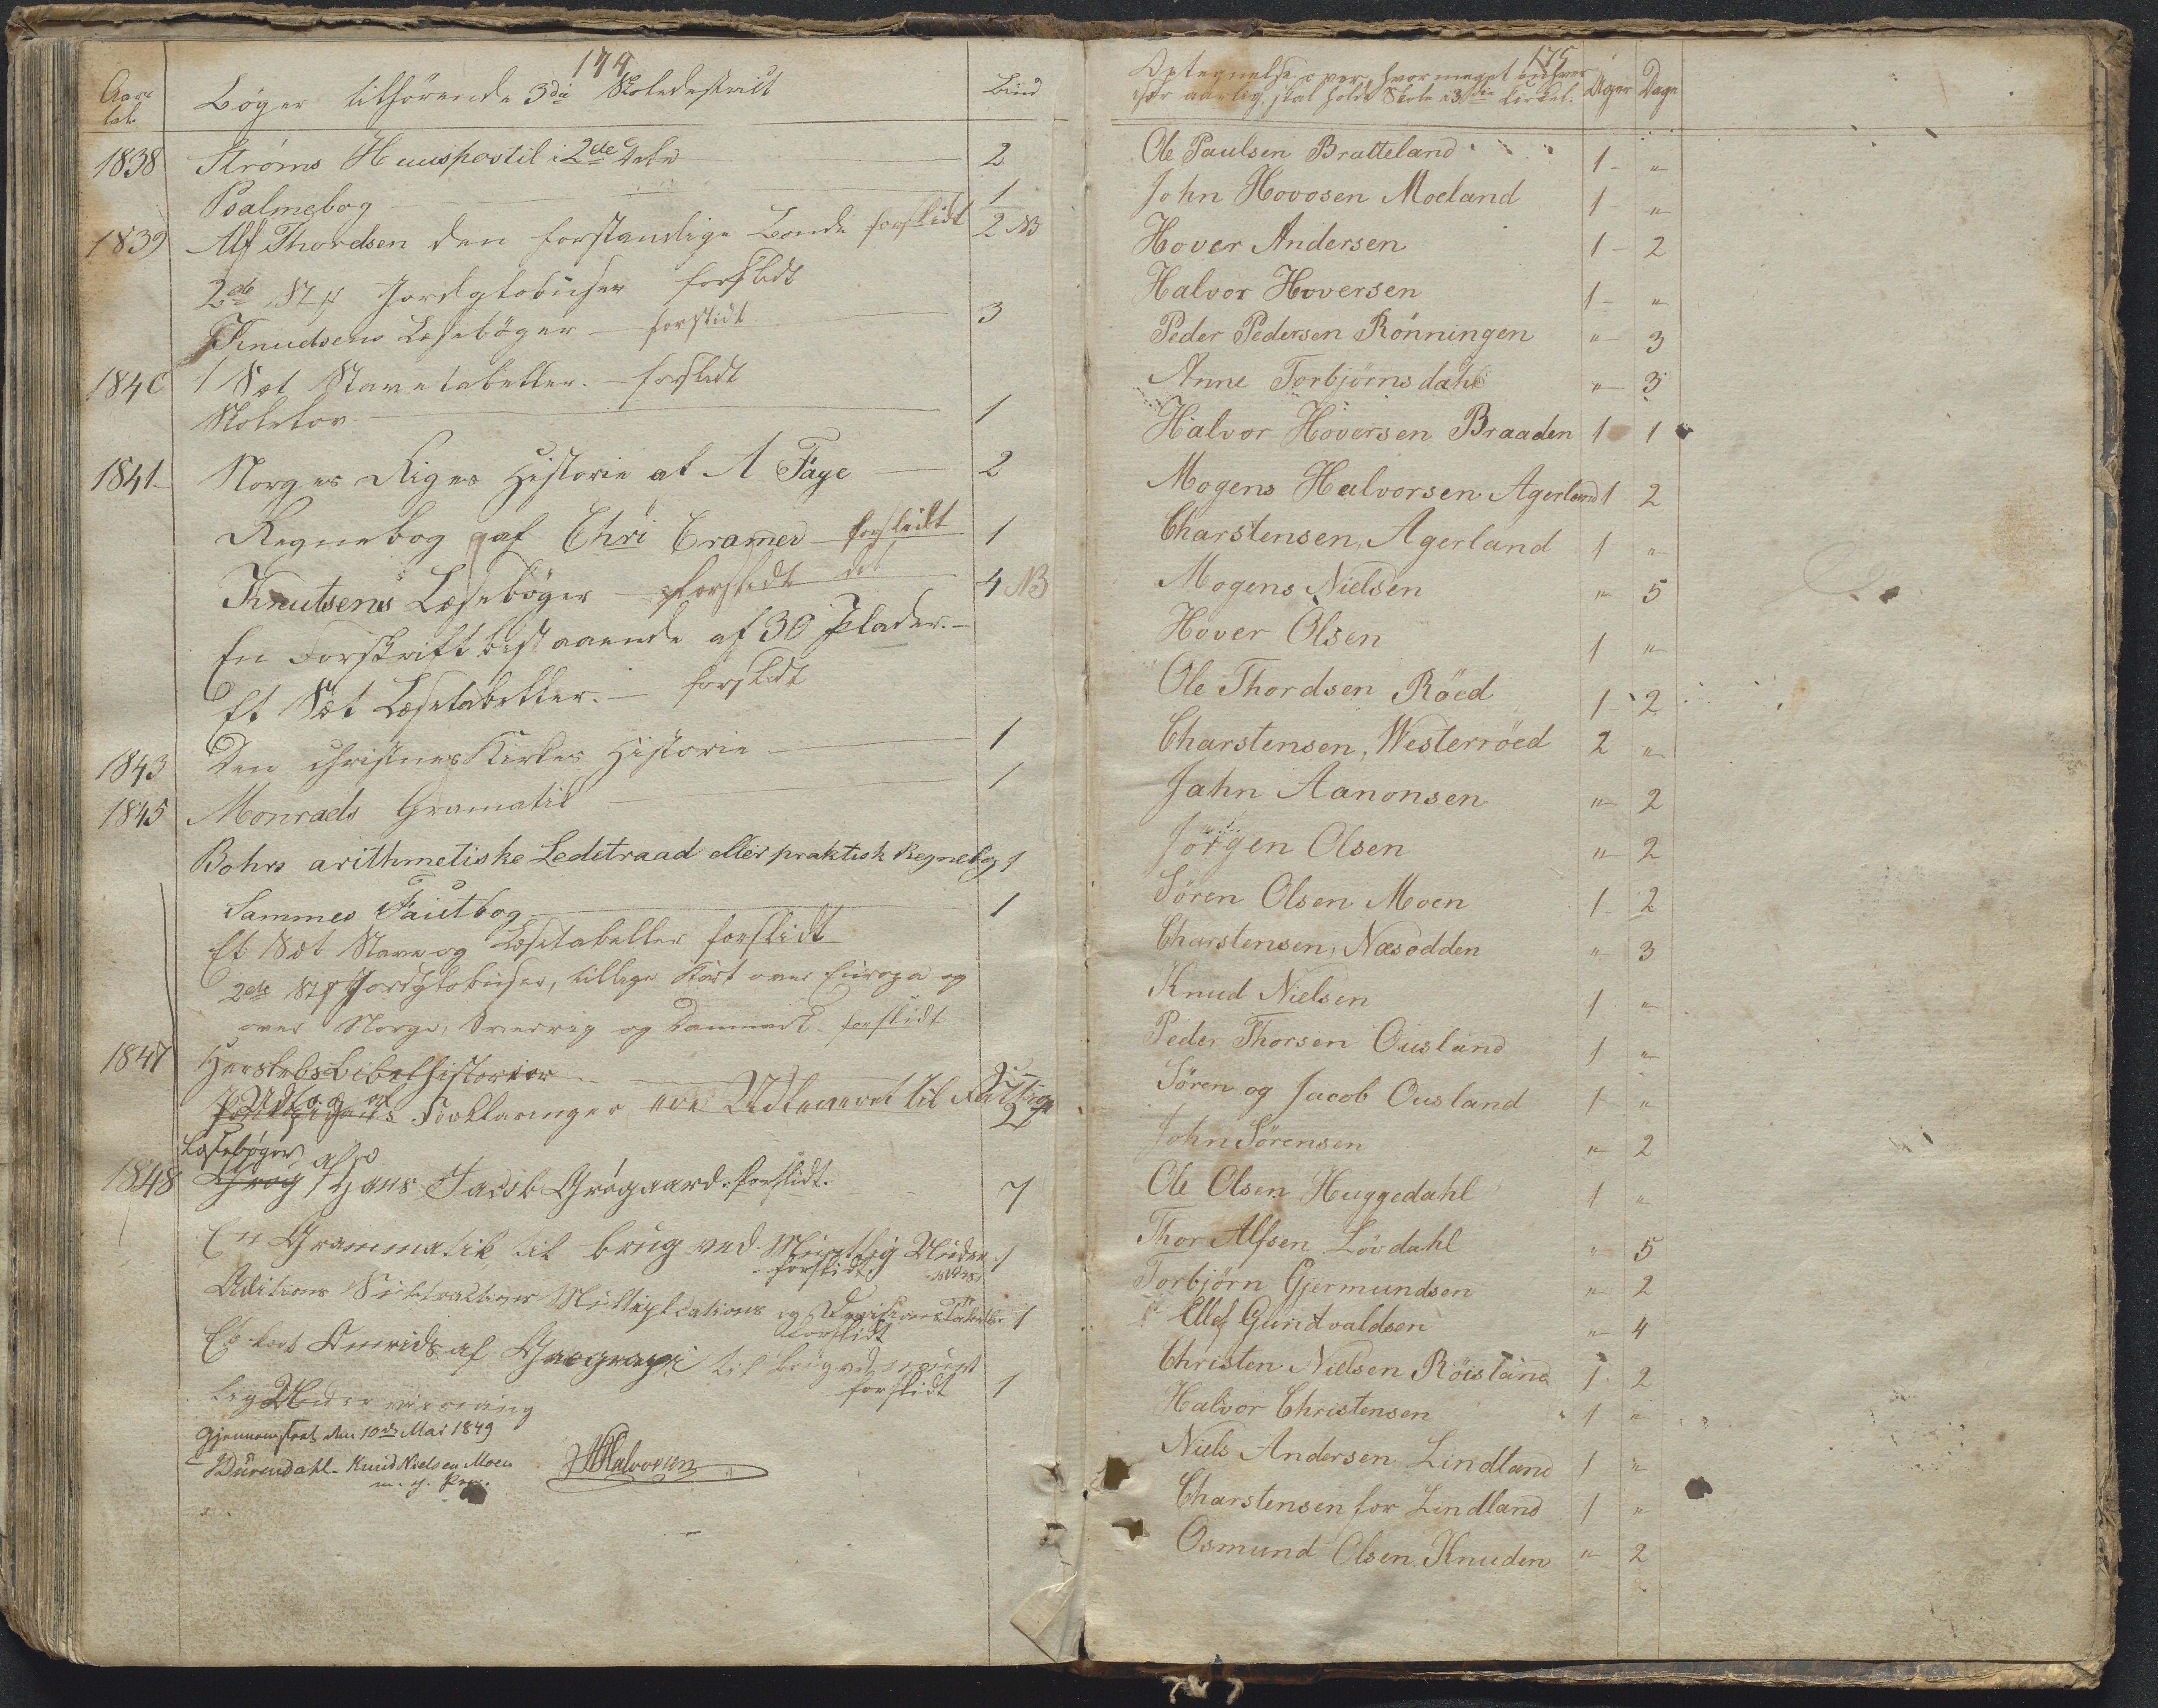 174
Aars
tal.
Bøger tilhørende 3die Skoledestrict
Bind
1838 Strøms Huuspostil i 2de Dele 2
Psalmebog 1
1839 Alf Thordsen den forstandige Bonde forslidt 2 NB
2de St Jordglobuser forslidt
Knudsens Læsebøger forslidt 3
1840 1 Sæt Stavetabeller. forslidt
Skoletov 1
1841 Norges Riges Historie af A Faye 2
Regnebog af Chri Cramer forslidt 1
Knutsens Læsebøger forslidt 4 NB
En Forskrift bestaaende af 30 Plader.
Et Sæt Læsetabeller. forslidt
1843 Den christnes Kirkes Historie 1
1845 Monrads Gramatik 1
Bohrs arithmetiske Ledetraad eller praktisk Regnebog 1
Sammes Faictbog 1
Et Sæt Stave og Læsetabeller forslidt
2de St Jordglobuser, tillige Kort over Europa og
over Norge, Sverrig og Danmark. forslidt
1847 Herslebs Bibelhistorier
Udtog af Forklaringer ere Udleveret til 2
Læsebøger af
1848 Hans Jacob Grøgaard. forslidt. 7
En Grammatik til brug ved Muntlig Under 1
forslidt
Aditions Subtractions Multiplications og Devisions Tabeller 1
forslidt
Et kort Omrids af Geograpi til brug ved
lig Underviisning forslidt 1
Gjennemseet den 10de Mai 1849
Dürendahl. Knud Nielsen Moen Halvorsen
m. f. Pen.
175
Optegnelse over, hvor meget enhver
især aarlig, skal holde Skole i 3die Cirkel. Uger Dage
Ole Paulsen Bratteland 1 - "
John Hovosen Moeland 1 - "
Hover Andersen 1 - 2
Halvor Hoversen 1 - "
Peder Pedersen Rönningen " - 3
Anne Torbjörnsdahl " - 3
Halvor Höversen Braaden 1 1
Mogens Halvorsen Agerland 1 2
Charstensen, Agerland 1 "
Mogens Nielsen " 5
Hover Olsen 1 "
Ole Thordsen Röed 1 - 2
Charstensen, Westerröed 2 "
Jahn Aanonsen " 2
Jörgen Olsen " 2
Sören Olsen Moen 1 2
Charstensen, Næsodden " 3
Knud Nielsen 1 "
Peder Thorsen Ousland 1 "
Sören og Jacob Ousland 1 "
John Sörensen " 2
Ole Olsen Huggedahl 1 "
Thor Alfsen Lövdahl " 5
Torbjörn Gjermundsen " 2
Ellef Gundvaldsen " 4
Christen Nielsen Röisland 1 2
Halvor Christensen 1 "
Niels Andersen Lindland 1 "
Charstensen for Lindland 1 "
Osmund Olsen Knuden " 2